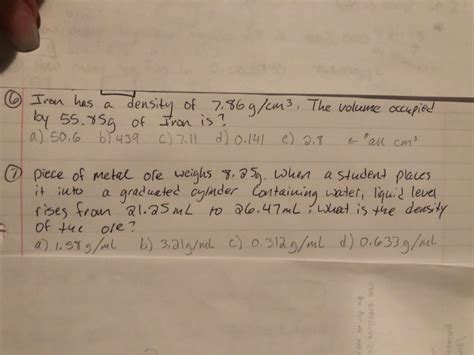 ⑥ Iron has a density of 7.86 g/cm³. The volume occupied
by 55.85g of Iron is?
a) 50.6 b) 439 c) 7.11 d) 0.141 e) 2.8 ← *all cm³
⑦ piece of metal ore weighs 8.25g. When a student places
it into a graduated cylinder containing water, liquid level
rises from 21.25 mL to 26.47 mL; What is the density
of the ore?
a) 1.58 g/mL b) 3.21 g/mL c) 0.312 g/mL d) 0.633 g/mL